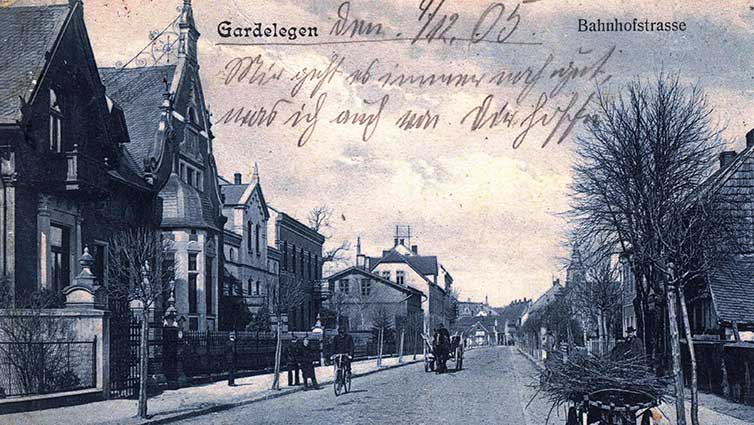 Gardelegen den. 4/12. 05.
Bahnhofstrasse
Mir geht es immer noch gut,
was ich auch von Dir hoffe